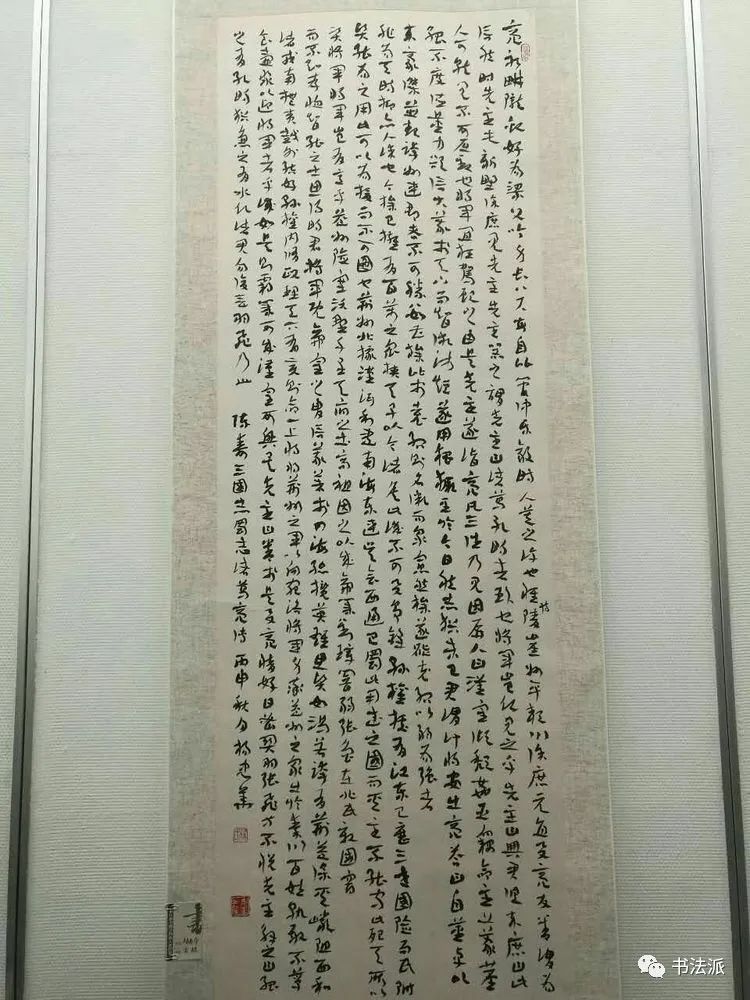 亮躬畊隴畝好為梁父吟身長八尺每自比管仲樂毅時人莫之許也惟博陵崔州平潁川徐庶元直與亮友善謂為
信然時先主屯新野徐庶見先主先主器之謂先主曰諸葛孔明者臥龍也將軍豈願見之乎先主曰與君俱來庶曰此
人可就見不可屈致也將軍宜枉駕顧之由是先主遂詣亮凡三往乃見因屏人曰漢室傾頹姦臣竊命主上蒙塵
孤不度德量力欲信大義於天下而智術淺短遂用猖獗至於今日然志猶未已君謂計將安出亮答曰自董卓以
來豪傑並起跨州連郡者不可勝數曹操比於袁紹則名微而眾寡然操遂能克紹以弱為強者
非惟天時抑亦人謀也今操已擁有百萬之眾挾天子以令諸侯此誠不可與爭鋒孫權據有江東已歷三世國險而民附
賢能為之用此可以為援而不可圖也荊州北據漢沔利盡南海東連吳會西通巴蜀此用武之國而其主不能守此殆天所以
資將軍將軍豈有意乎益州險塞沃野千里天府之土高祖因之以成帝業劉璋闇弱張魯在北民殷國富
而不知存恤智能之士思得明君將軍既帝室之胄信義著於四海總攬英雄思賢如渴若跨有荊益保其巖阻西和
諸戎南撫夷越外結好孫權內修政理天下有變則命一上將將荊州之軍以向宛洛將軍身率益州之眾出於秦川百姓孰敢不簞
食壺漿以迎將軍者乎誠如是則霸業可成漢室可興矣先主曰善於是與亮情好日密關羽張飛等不悅先主解之曰孤
之有孔明猶魚之有水也諸君勿復言羽飛乃止 陳壽三國志蜀志諸葛亮傳 丙申秋月楊
书法派